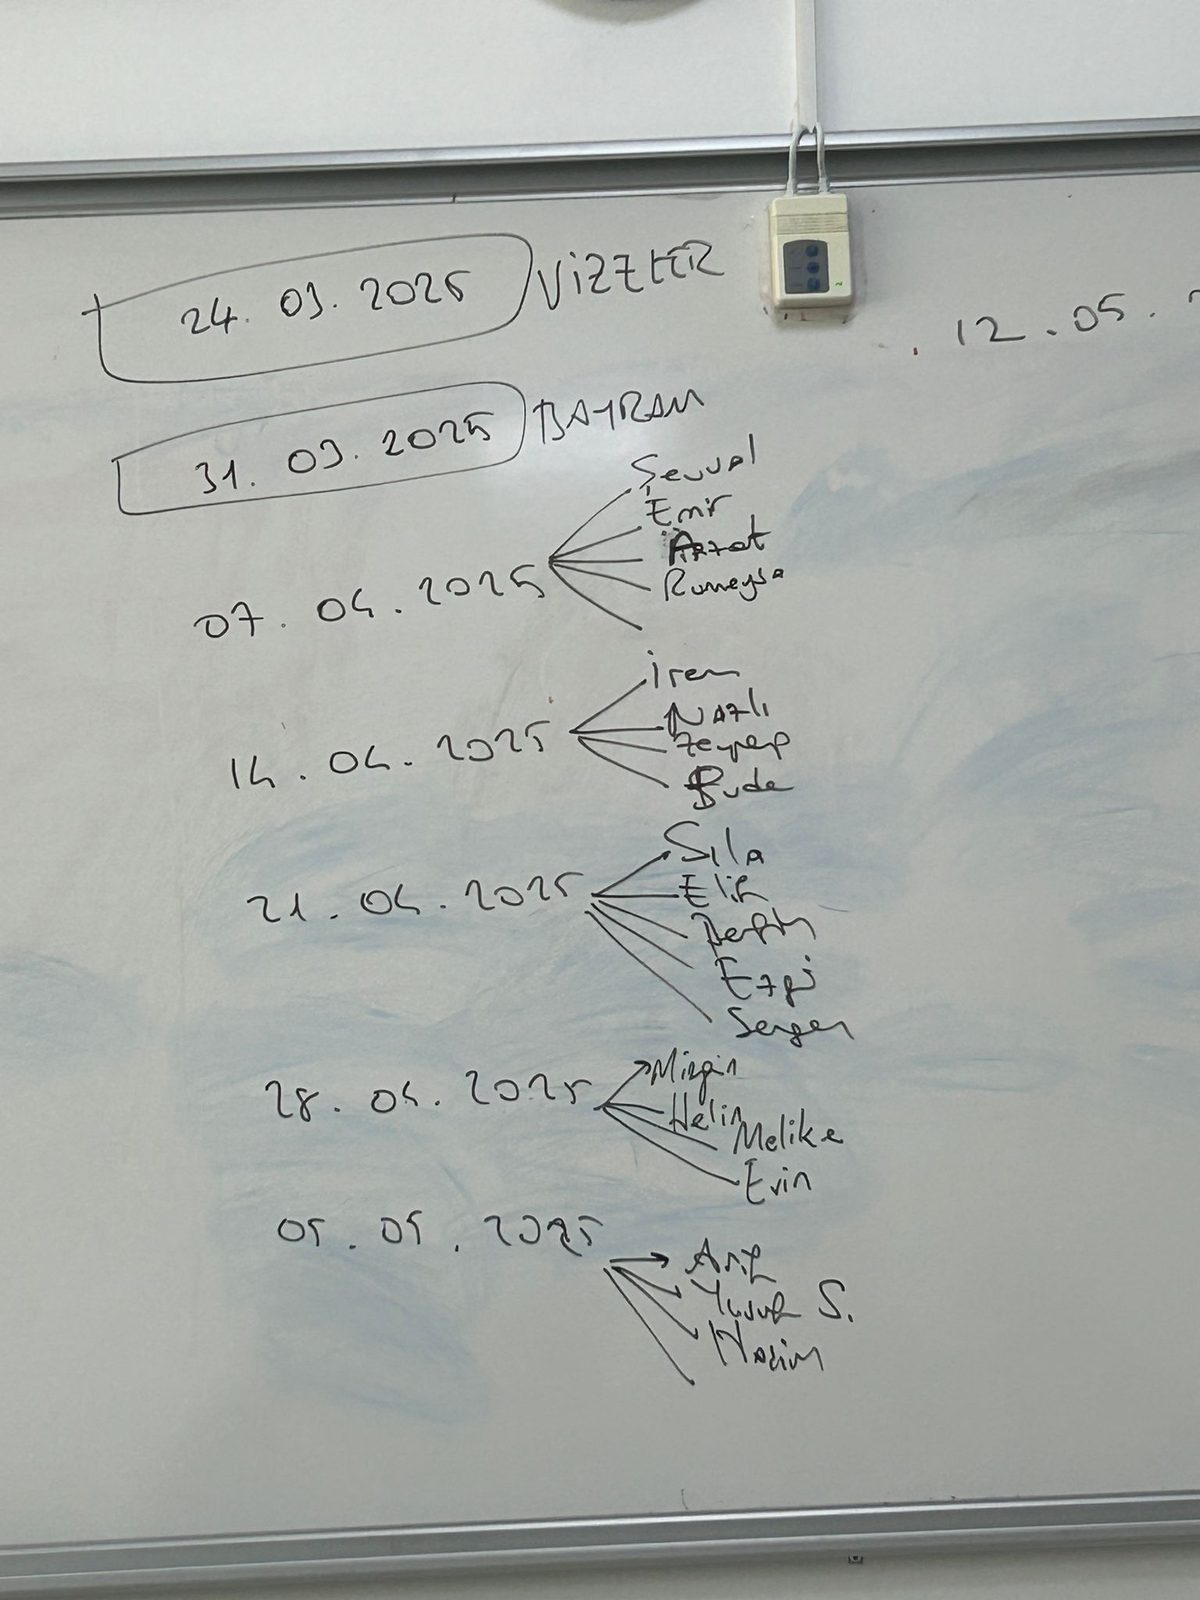 24. 03. 2025 VİZELER
31. 03. 2025 BAYRAM
07. 04. 2025
Şevval
Emir
Azzet
Rumeysa
14. 04. 2025
İrem
Nazlı
Zeynep
Buda
21. 04. 2025
Sıla
Elif
Berfin
Ezgi
Sergen
28. 04. 2025
Mizgin
Helin
Melike
Evin
05. 05. 2025
Arif
Yusuf S.
Nazim
. 12 . 05 .